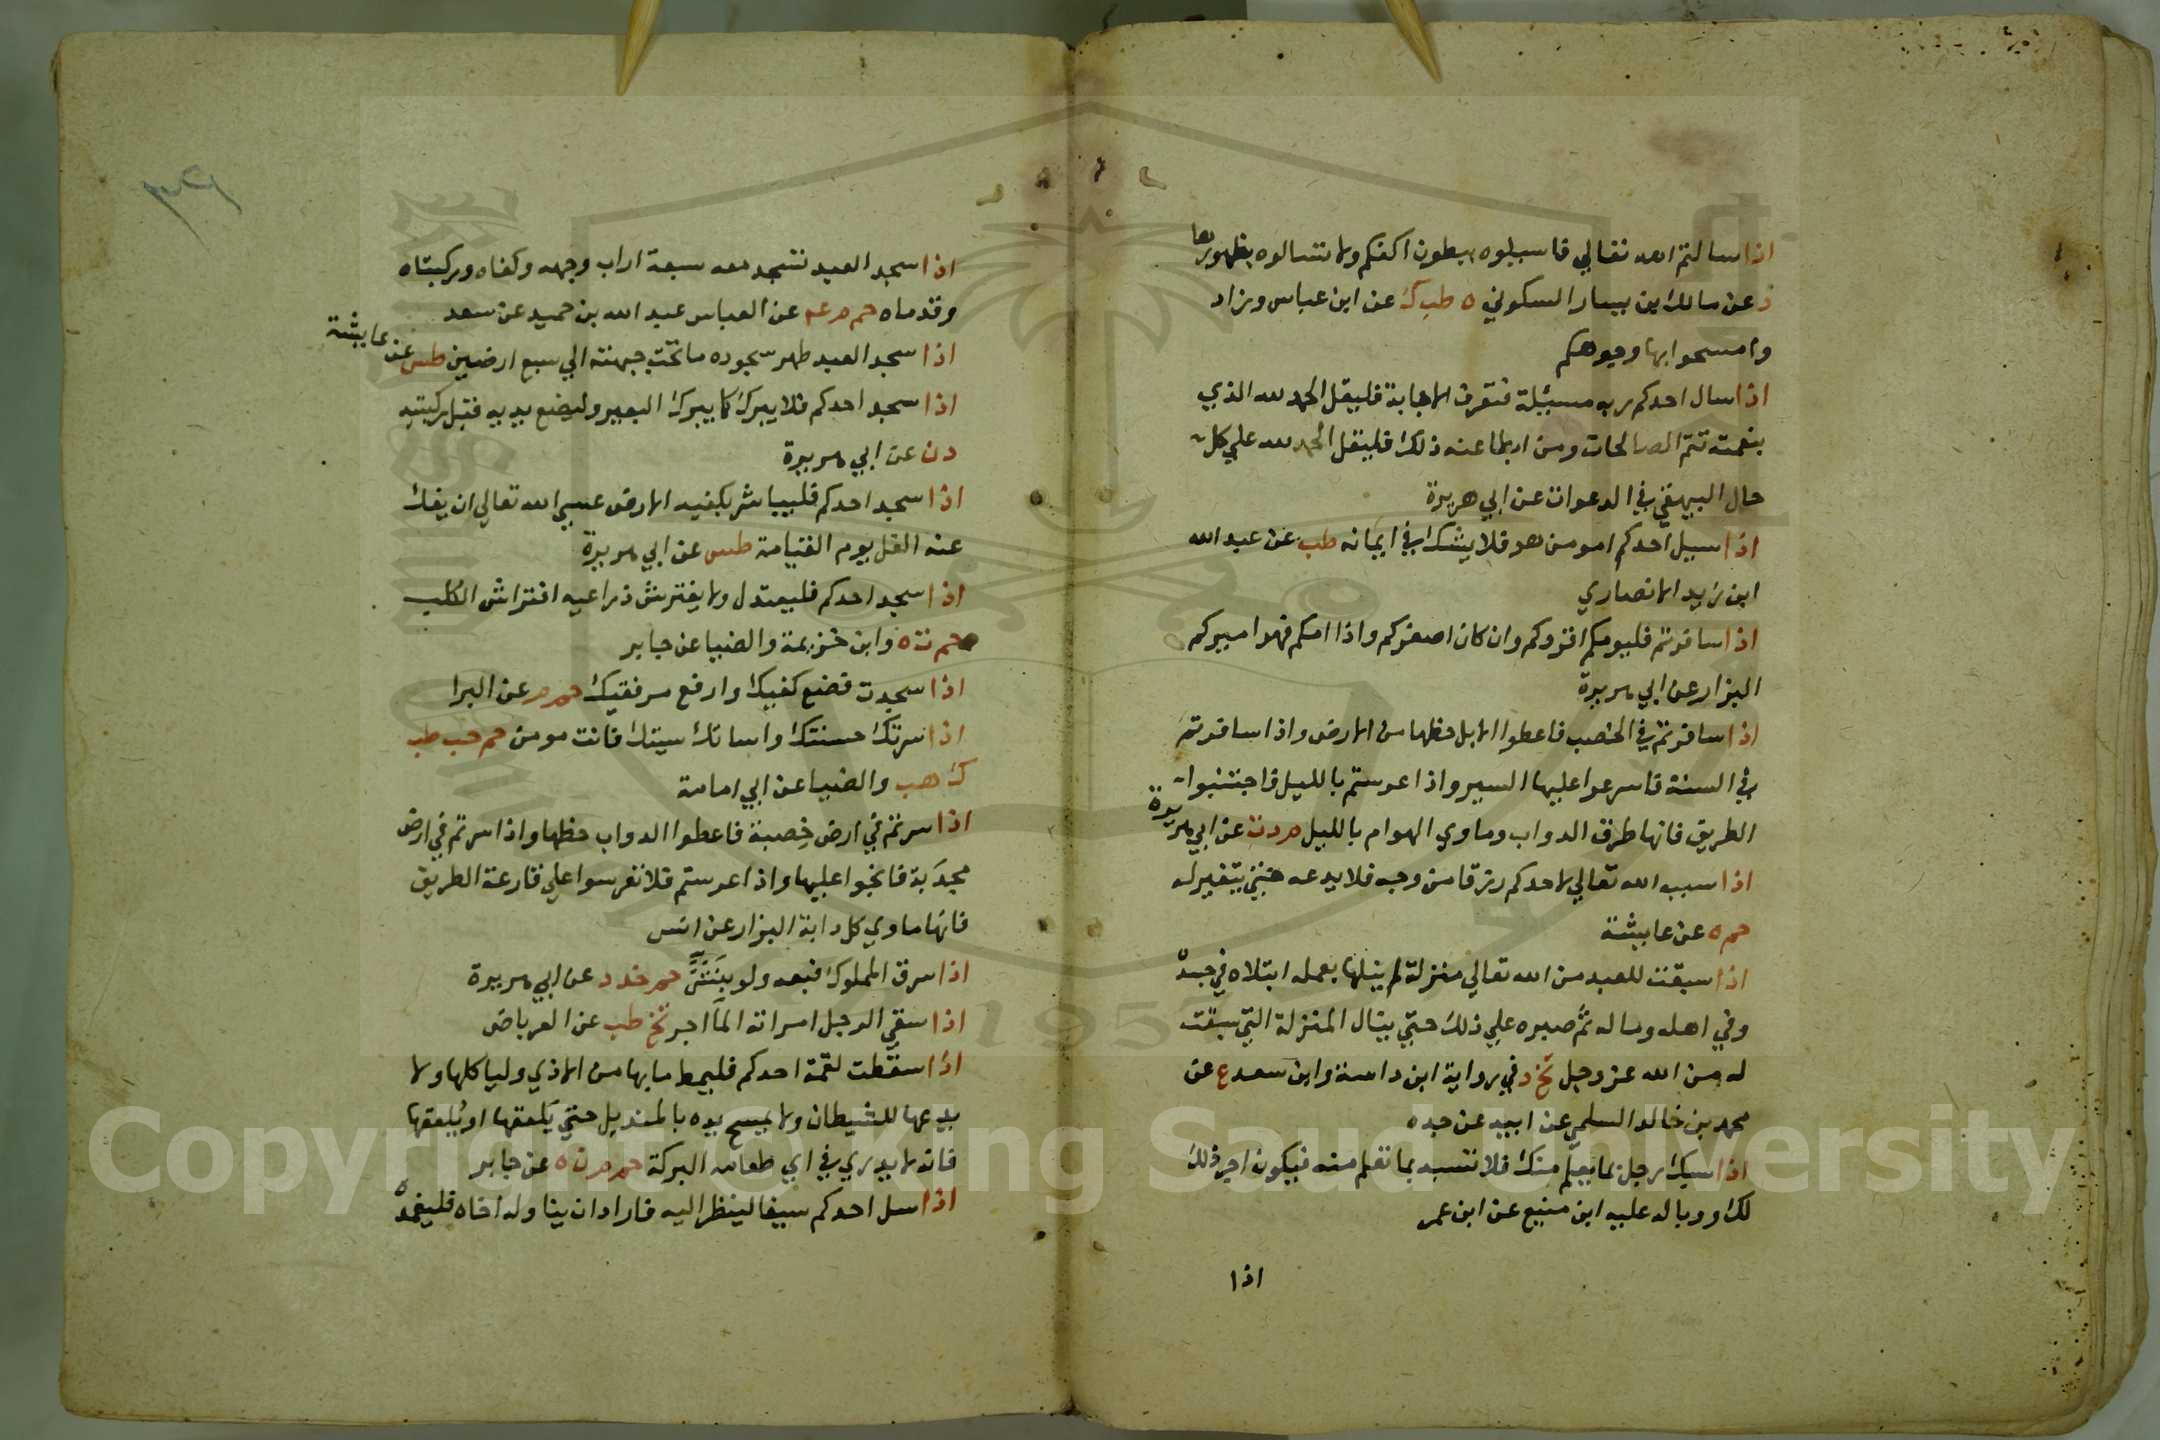 اذا سالتم الله تعالي فاسيلوه ببطون اكفكم ولا تسالوه بظهورها
د عن مالك بن يسار السكوني ه طب ك عن ابن عباس وزاد
وامسحوا بها وجوهكم
اذا سال احدكم ربه مسئلة فتعرف الاجابة فليقل الحمد لله الذي
بنعمته تتم الصالحات ومن ابطا عنه ذلك فليقل الحمد لله علي كل
حال البيهقي في الدعوات عن ابي هريرة
اذا سيل احدكم امومن هو فلا يشك في ايمانه طب عن عبد الله
ابن زيد الانصاري
اذا سافرتم فليومكم اقروكم وان كان اصغركم واذا امكم فهو اميركم
البزار عن ابي هريرة
اذا سافرتم في الخصب فاعطوا الابل حظها من الارض واذا سافرتم
في السنة فاسرعوا عليها السير واذا عرستم بالليل فاجتنبوا
الطريق فانها طرق الدواب وماوي الهوام بالليل م د ت عن ابي هريرة
اذا سبب الله تعالي لاحدكم رزقا من وجه فلا يدعه حتي يتغير له
حم ه عن عايشة
اذا سبقت للعبد من الله تعالي منزلة لم ينلها بعمله ابتلاه في جسده
وفي اهله وماله ثم صبره علي ذلك حتي ينال المنزلة التي سبقت
له من الله عز وجل تخ د في رواية ابن داسة وابن سعد ع عن
محمد بن خالد السلمي عن ابيه عن جده
اذا سبك رجل بما يعلم منك فلا تسبه بما تعلم منه فيكون اجر ذلك
لك ووباله عليه ابن منيع عن ابن عمر
اذا
اذا سجد العبد تسجد معه سبعة اراب وجهه وكفاه وركبتاه
وقدماه حم م عه عن العباس عبد الله بن حميد عن سعد
اذا سجد العبد طهر سجوده ما تحت جبهته الي سبع ارضين طس عن عايشة
اذا سجد احدكم فلا يبرك كما يبرك البعير وليضع يديه قبل ركبتيه
د ن عن ابي هريرة
اذا سجد احدكم فليباشر بكفيه الارض عسي الله تعالي ان يفك
عنه الغل يوم القيامة طس عن ابي هريرة
اذا سجد احدكم فليعتدل ولا يفترش ذراعيه افتراش الكلب
حم ت ه وابن خزيمة والضيا عن جابر
اذا سجدت فضع كفيك وارفع مرفقيك حم م عن البرا
اذا سرتك حسنتك واساتك سيتك فانت مومن حم حب طب
ك هب والضيا عن ابي امامة
اذا سرتم في ارض خصبة فاعطوا الدواب حظها واذا سرتم في ارض
مجدبة فانجوا عليها واذا عرستم فلا تعرسوا علي قارعة الطريق
فانها ماوي كل دابة البزار عن انس
اذا سرق المملوك فبعه ولو بنش حم خد د عن ابي هريرة
اذا سقي الرجل امراته الما اجر تخ طب عن العرباض
اذا سقطت لقمة احدكم فليمط ما بها من الاذي ولياكلها ولا
يدعها للشيطان ولا يمسح يده بالمنديل حتي يلعقها او يلعقها
فانه لا يدري في اي طعامه البركة حم م ن ه عن جابر
اذا سل احدكم سيفا لينظر اليه فاراد ان يناوله اخاه فليغمده
Copyright © King Saud University
1957